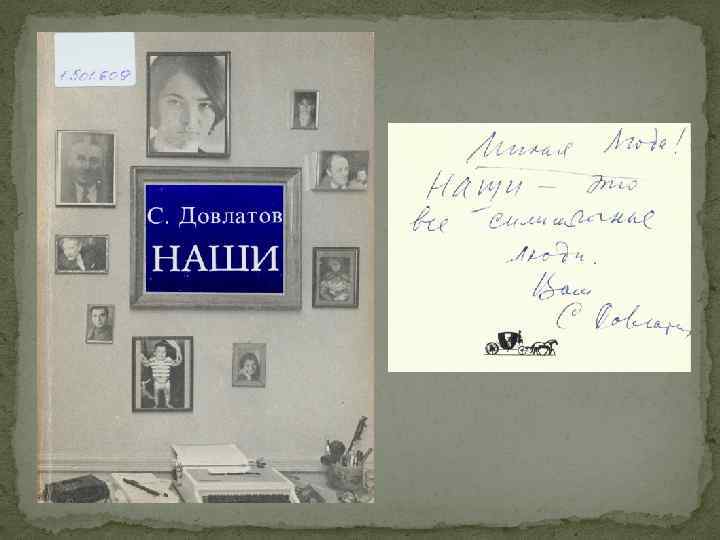 1.501.609
С. Довлатов
НАШИ
Милая Люда!
Наши — это
все симпатичные
люди.
Ваш
С Довлатов